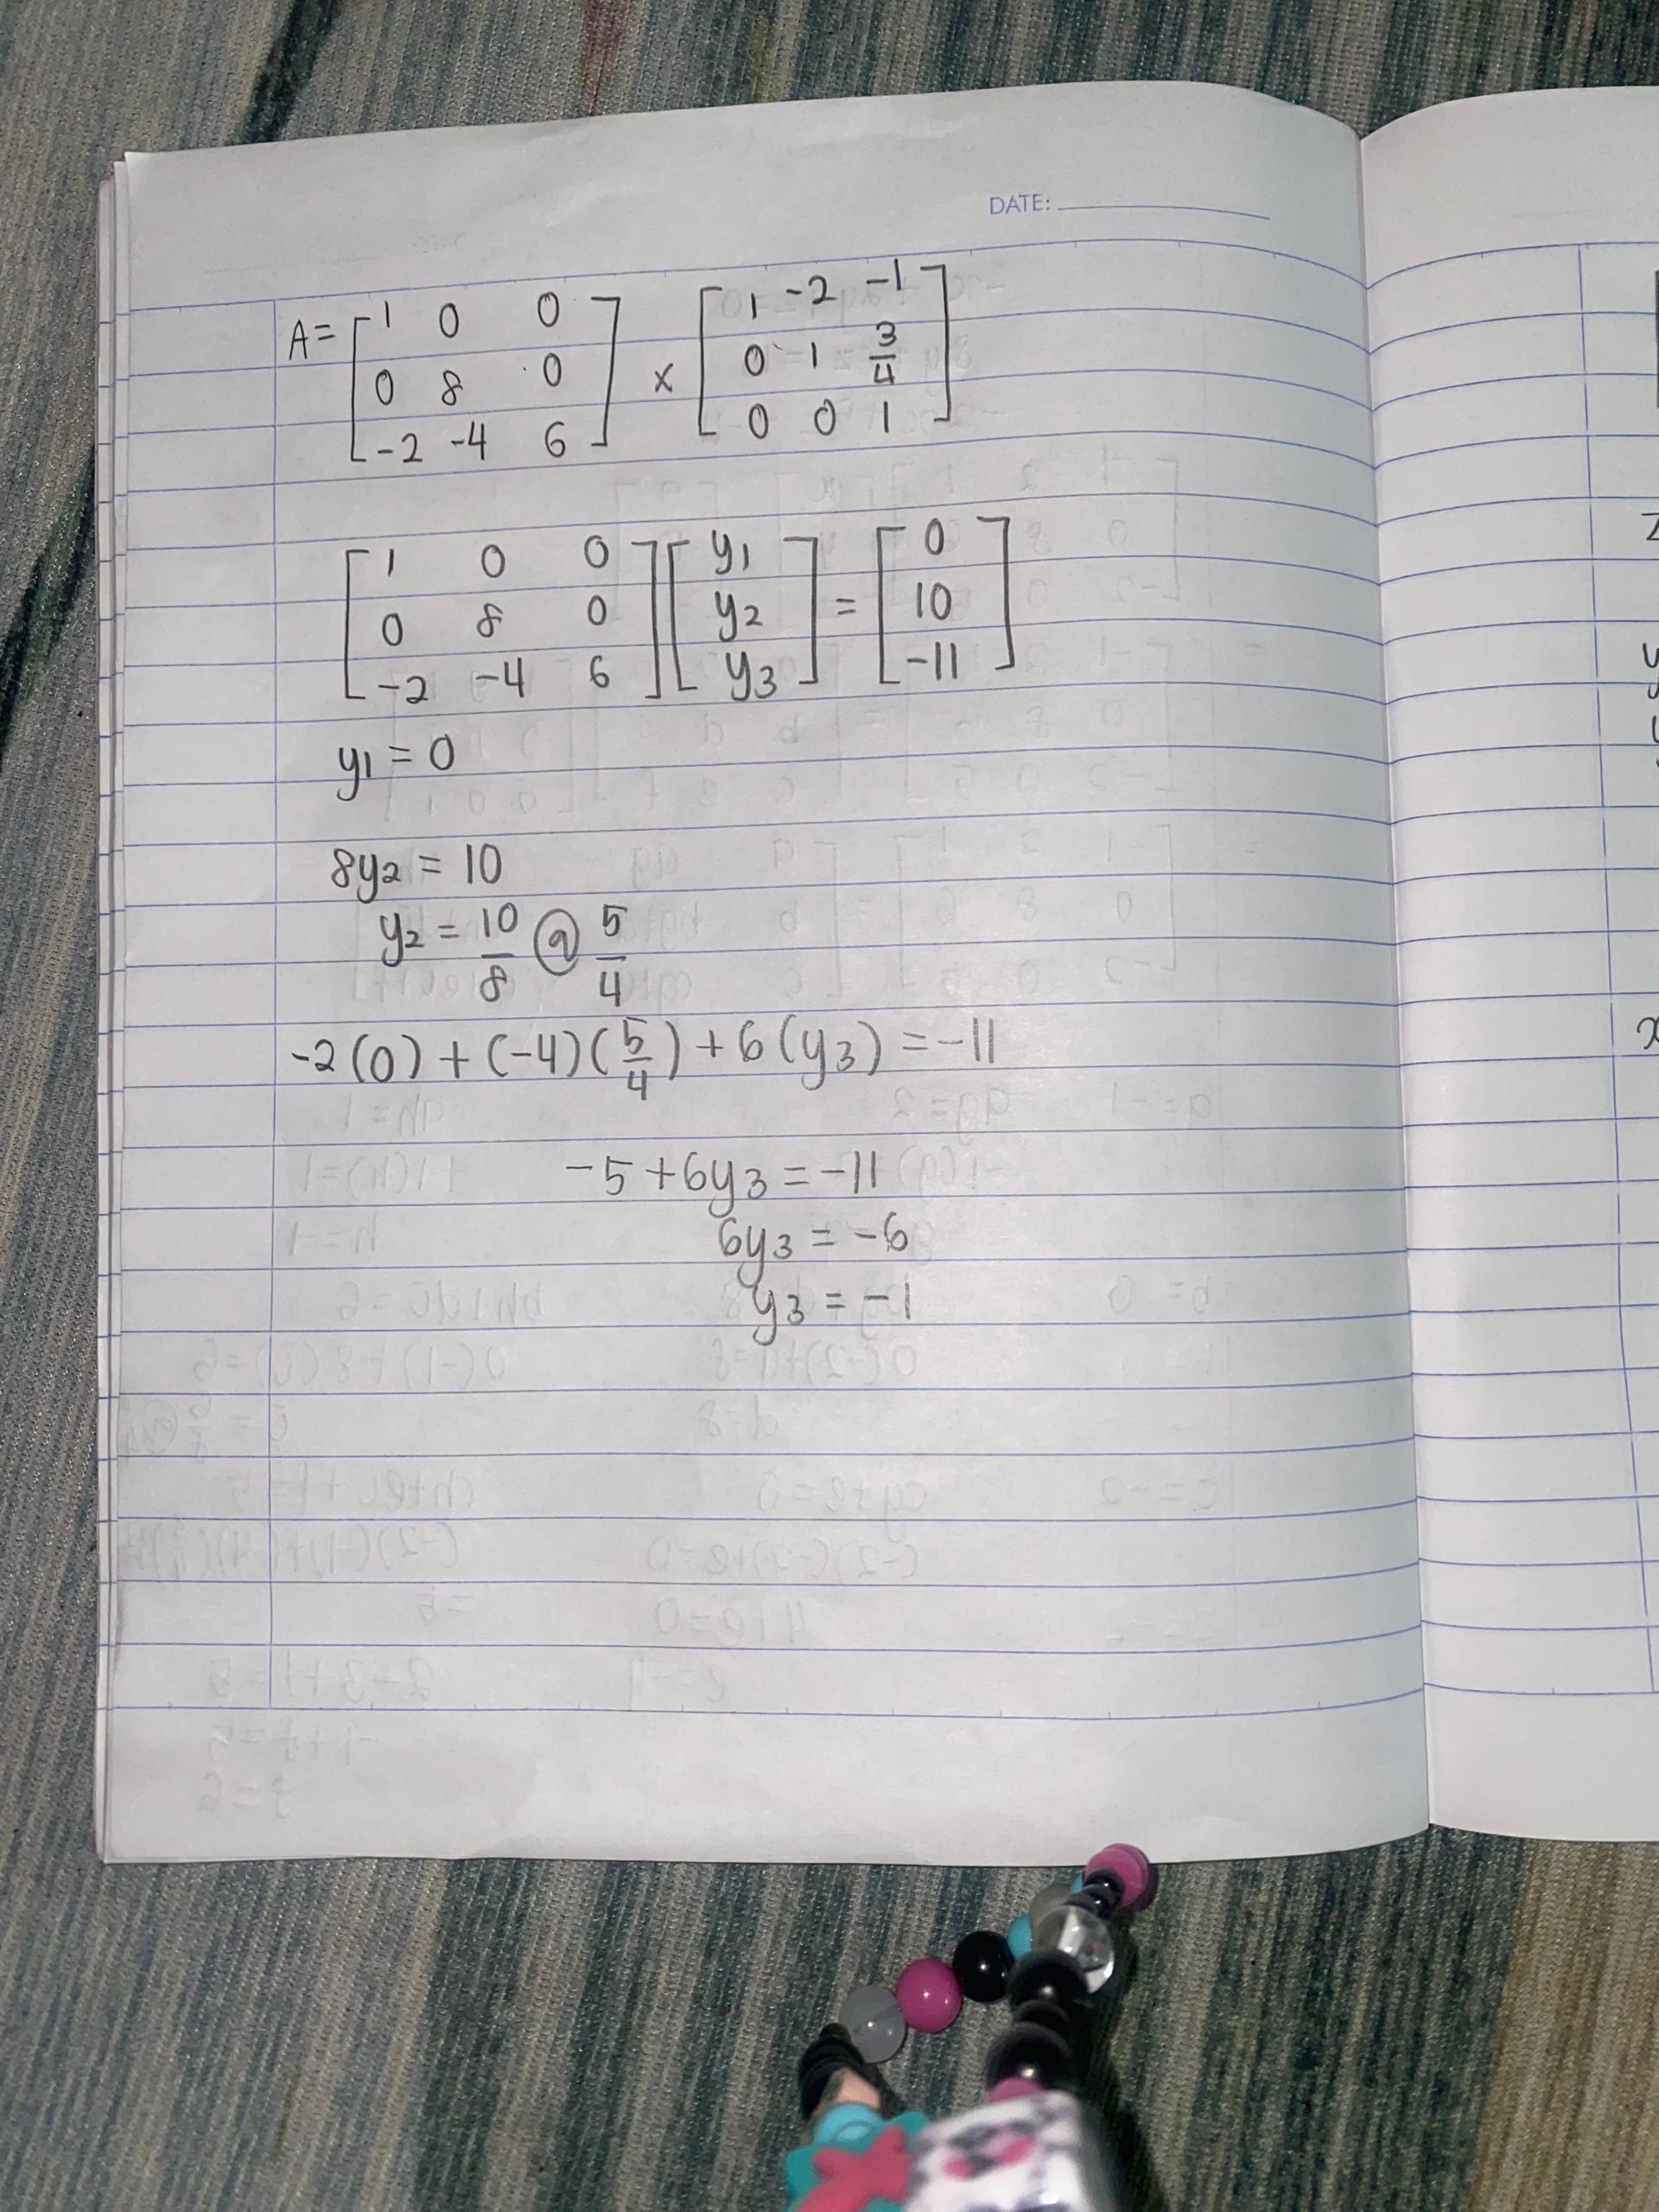 DATE:
A = [1 0 0; 0 8 0; -2 -4 6] × [1 -2 -1; 0 1 3/4; 0 0 1]
[1 0 0; 0 8 0; -2 -4 6] [y1; y2; y3] = [0; 10; -11]
y1 = 0
8y2 = 10
y2 = 10/8 @ 5/4
-2(0) + (-4)(5/4) + 6(y3) = -11
-5 + 6y3 = -11
6y3 = -6
y3 = -1